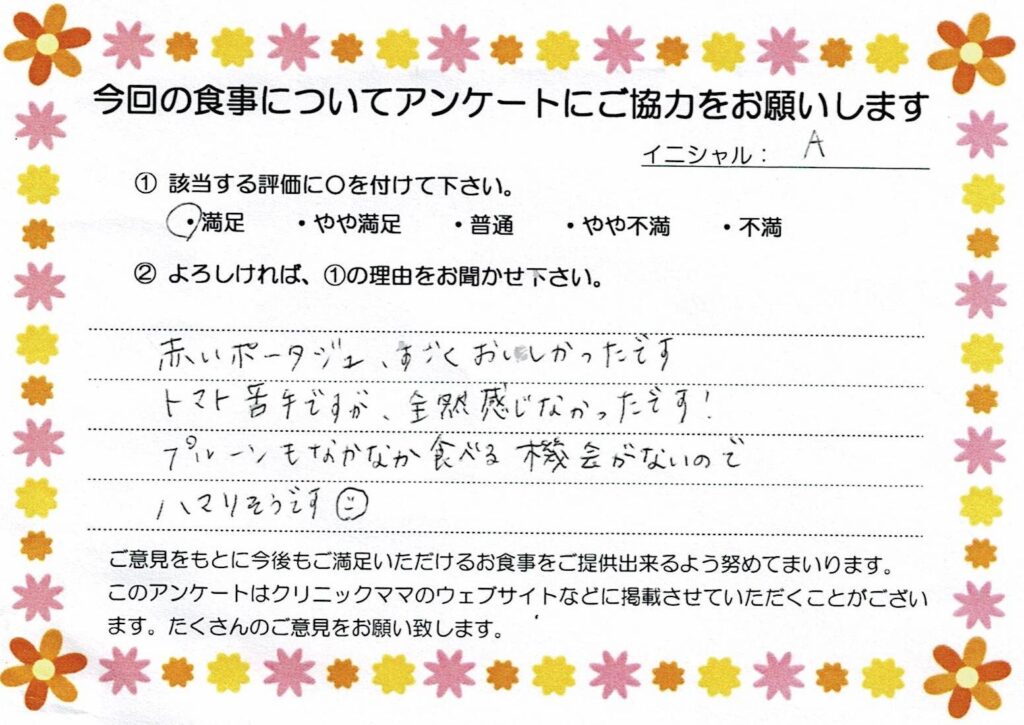 今回の食事についてアンケートにご協力をお願いします
イニシャル： A
① 該当する評価に〇を付けて下さい。
・満足 ・やや満足 ・普通 ・やや不満 ・不満
② よろしければ、①の理由をお聞かせ下さい。
赤いポータジュ、すごくおいしかったです
トマト苦手ですが、全然感じなかったです！
プルーンもなかなか食べる機会がないので
ハマりそうです
ご意見をもとに今後もご満足いただけるお食事をご提供出来るよう努めてまいります。
このアンケートはクリニックママのウェブサイトなどに掲載させていただくことがござい
ます。たくさんのご意見をお願い致します。